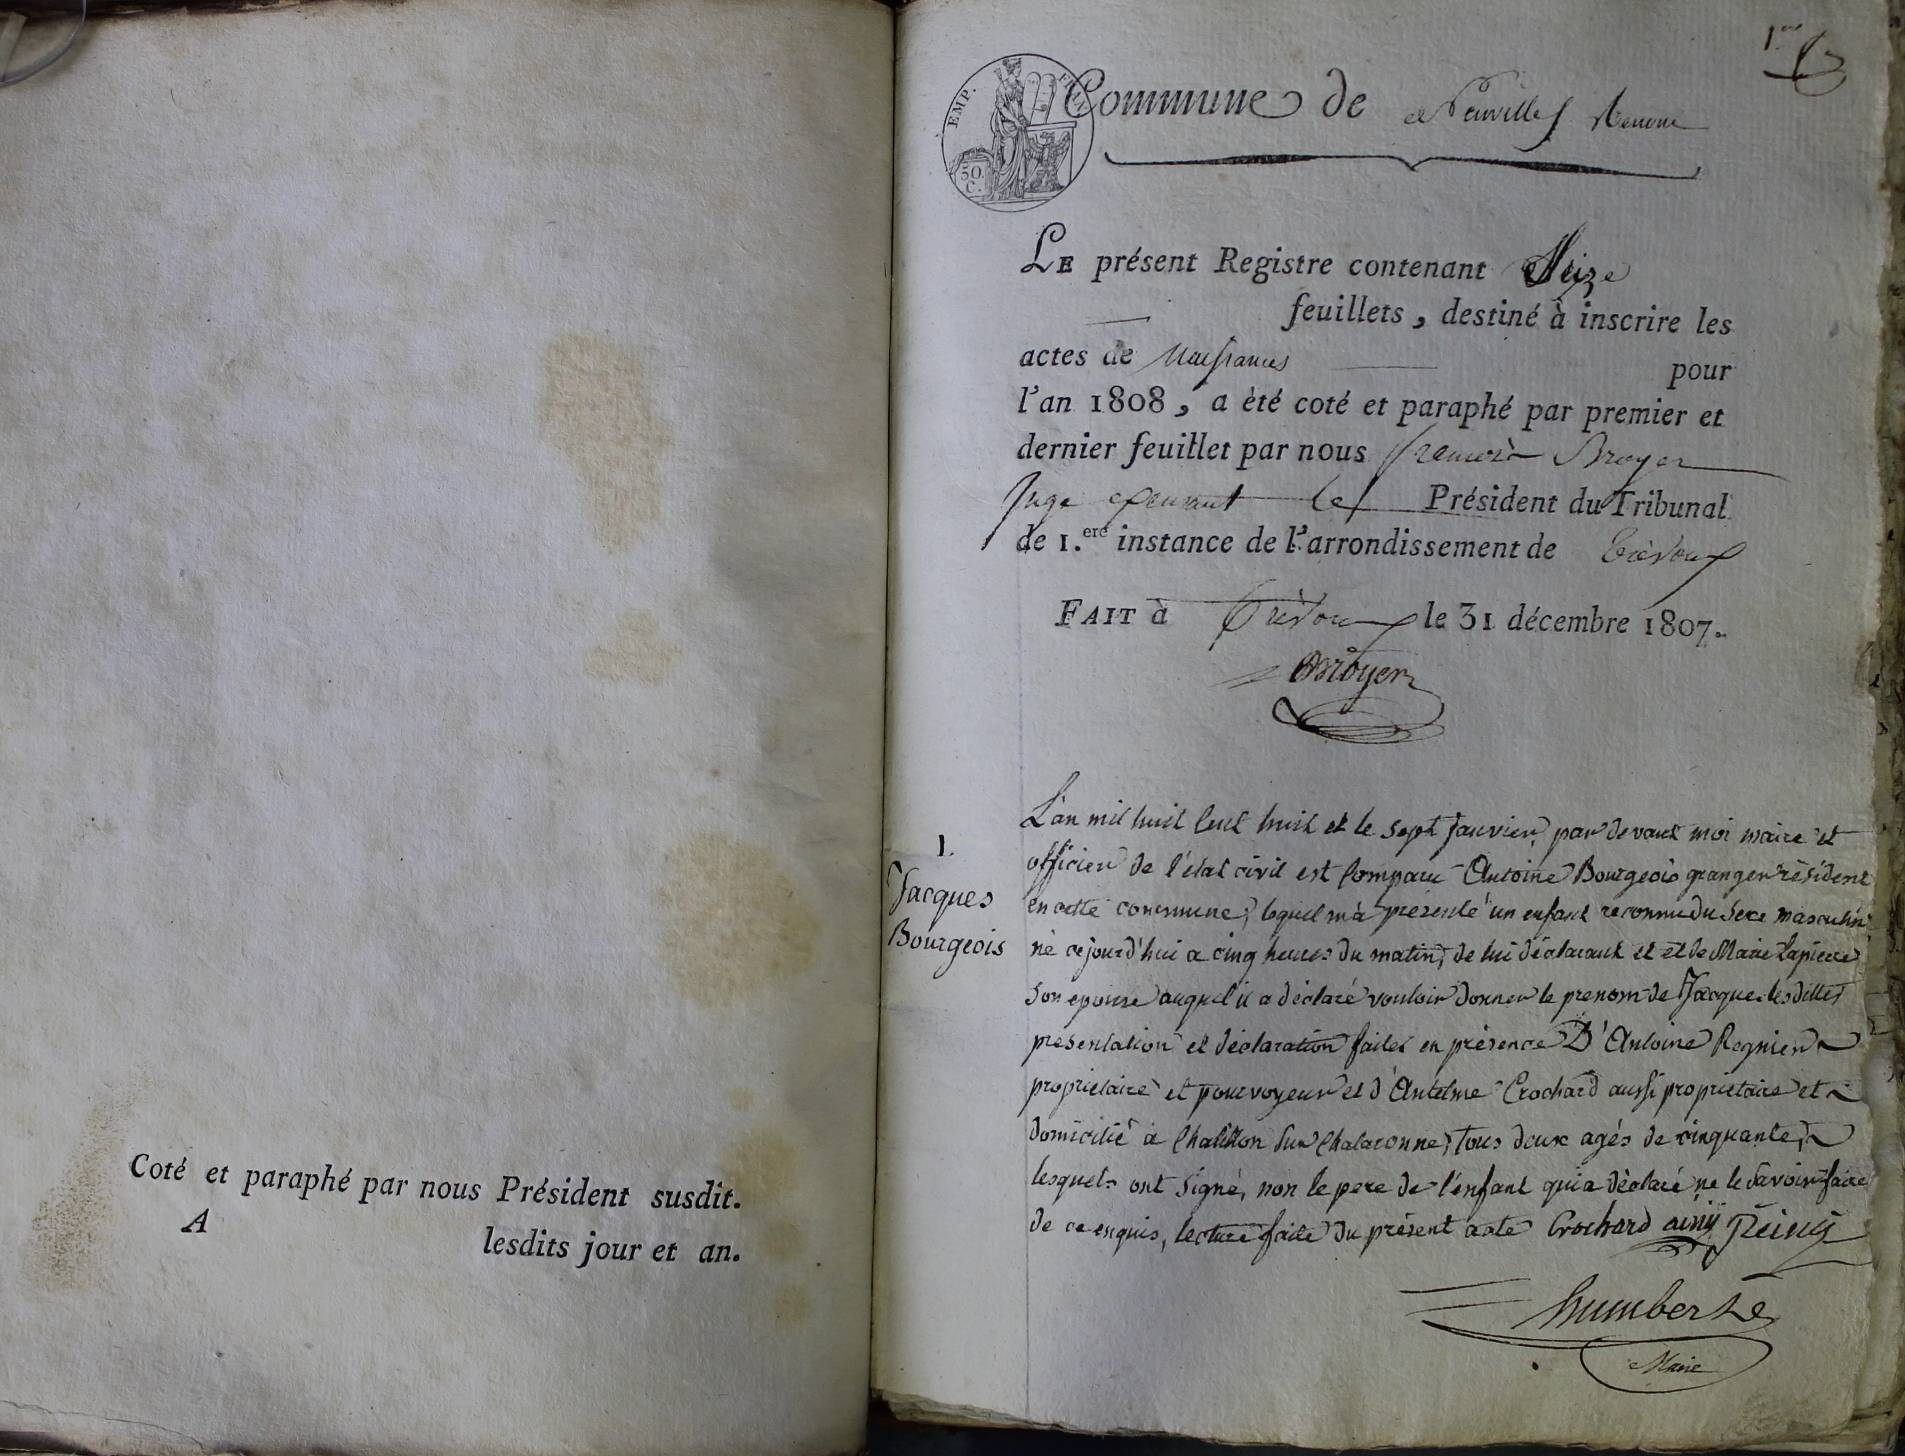 Coté et paraphé par nous Président susdit.
A lesdits jour et an.
1.er
EMP. FRAN.
50.
C.
Commune de Neuville s Renom
LE présent Registre contenant Seize
feuillets, destiné à inscrire les
actes de Naissances pour
l'an 1808, a été coté et paraphé par premier et
dernier feuillet par nous françois Broyer
Juge exerceant le Président du Tribunal
de 1.ere instance de l'arrondissement de Trévoux
FAIT à Trévoux le 31 décembre 1807.
Broyer
1.
Jacques
Bourgeois
L'an mil huit Cent huit et le sept Janvier, par devant moi maire et
officier de l'état civil est Comparu Antoine Bourgeois granger résident
en cette commune, lequel m'a presenté un enfant reconnu du Sexe masculin
né cejourd'hui a cinq heures du matin, de lui déclarant et et de Marie Lapierre
Son epouse auquel il a déclaré vouloir donner le prenom de Jacque. lesdittes
presentation et déclaration faites en présence D'Antoine Regnier
proprietaire et pourvoyeur et d'Antelme Crochard aussi proprietaire et
domicilié à Chatillon Sur Chalaronne, Tous deux agés de cinquante,
lesquels ont signé, non le pere de l'enfant qui a déclaré ne le Savoir faire
de ce enquis, lecture faite du présent acte Crochard
humbert
Maire